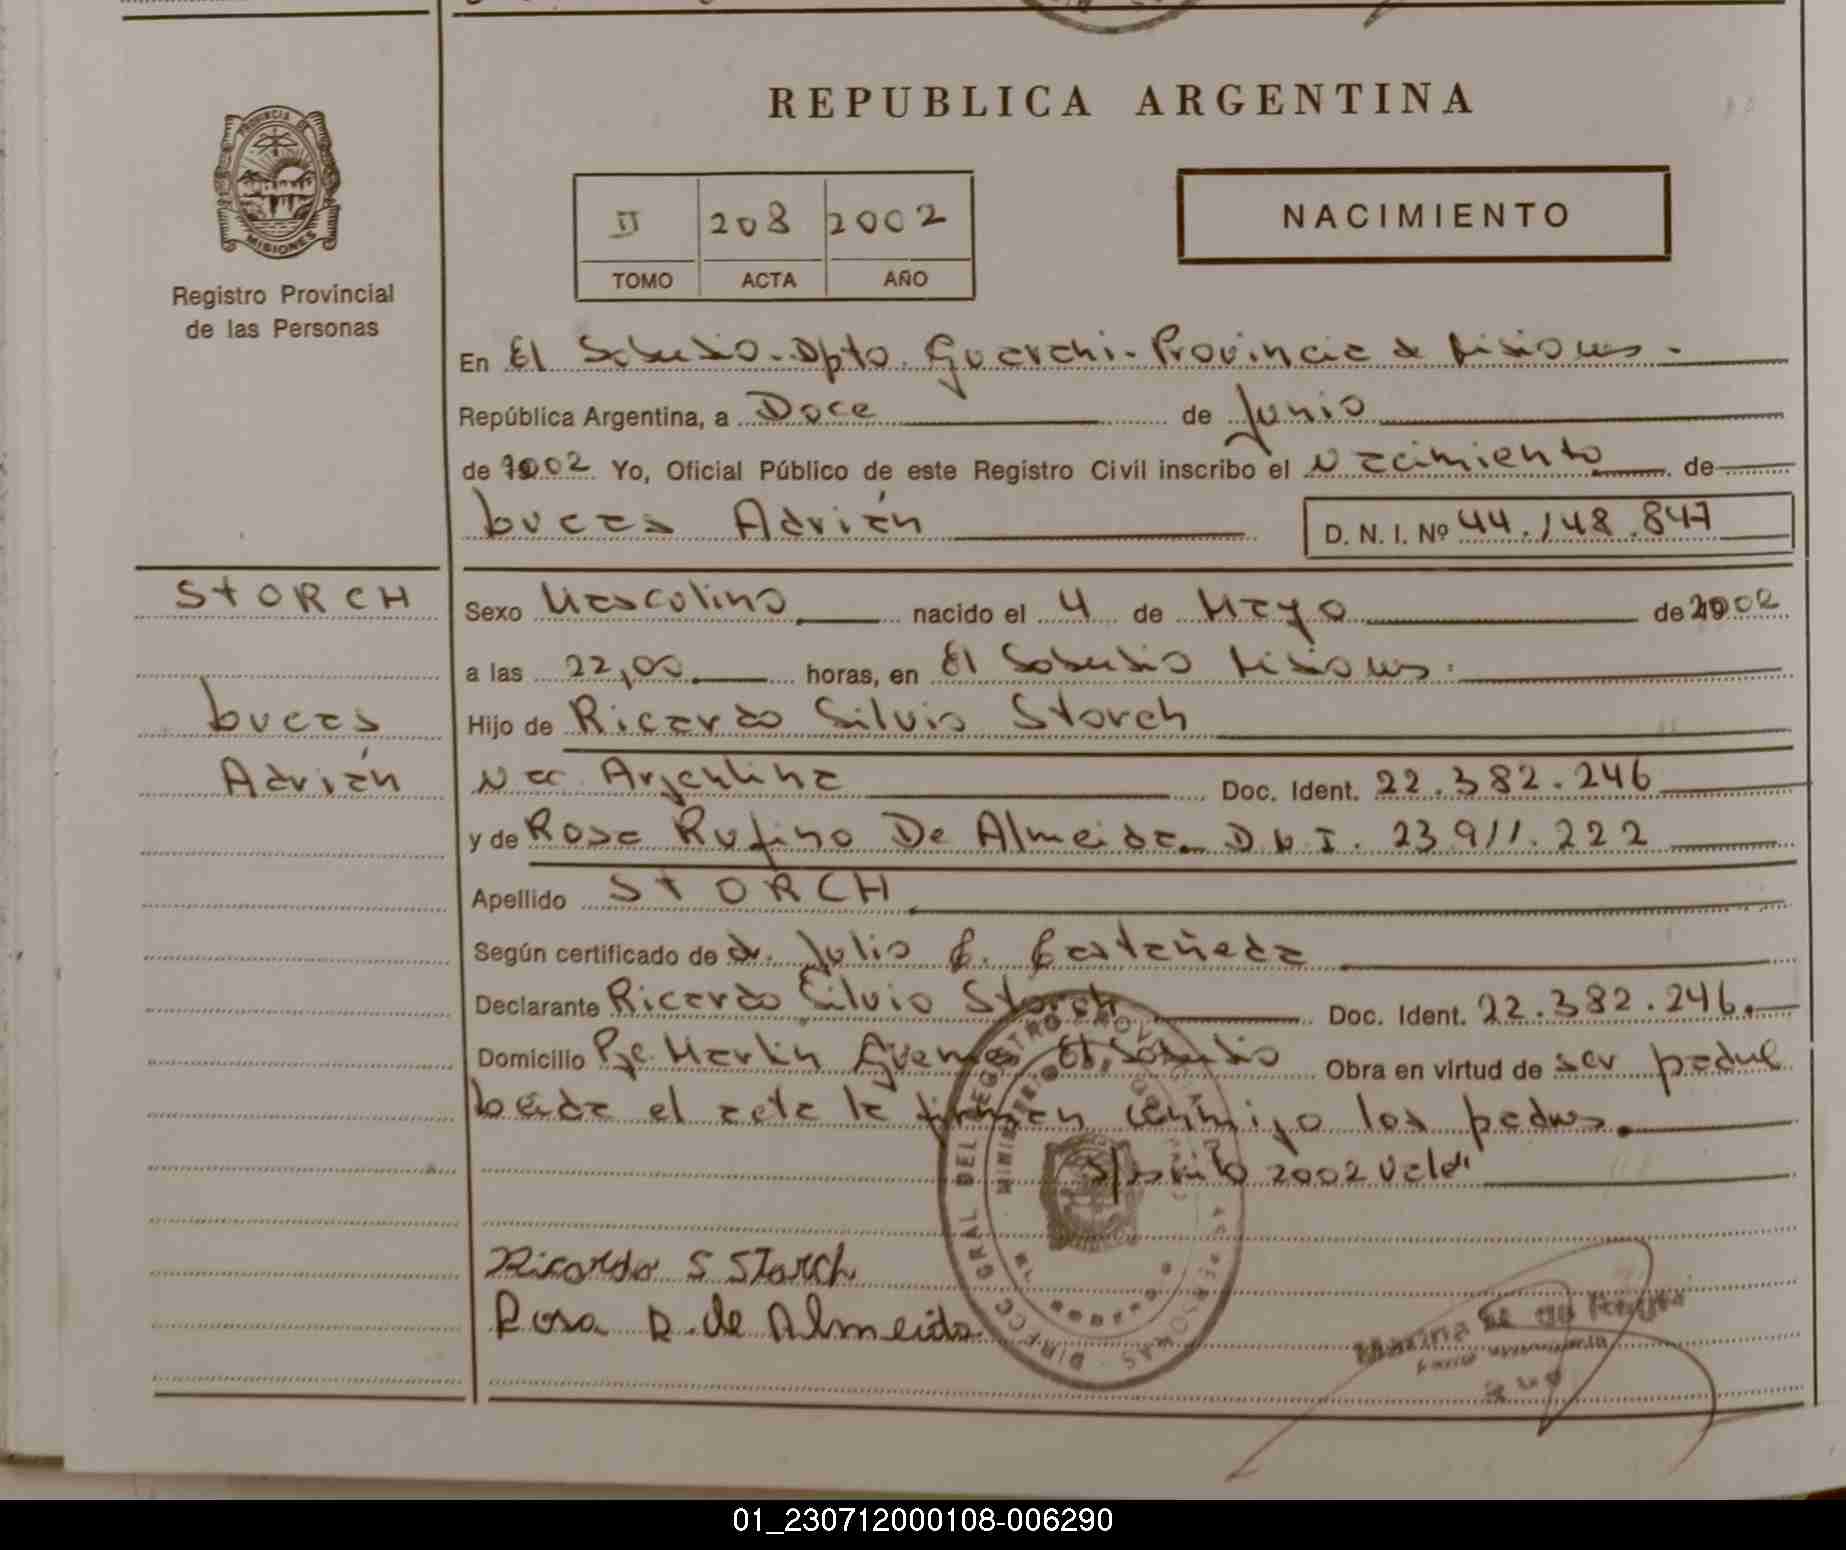 REPUBLICA ARGENTINA
PROVINCIA DE
MISIONES
Registro Provincial
de las Personas
II 208 2002
TOMO ACTA AÑO
NACIMIENTO
En El Soberbio - Dpto. Guarani - Provincia de Misiones -
República Argentina, a Doce de Junio
de 2002 Yo, Oficial Público de este Registro Civil inscribo el nacimiento de
Lucas Adrián D. N. I. Nº 44.148.847
STORCH
Lucas
Adrián
Sexo Masculino nacido el 4 de Mayo de 2002
a las 22,00 horas, en El Soberbio Misiones.
Hijo de Ricardo Silvio Storch
Nac. Argentina Doc. Ident. 22.382.246
y de Rosa Rufino De Almeida. D.N.I. 23.911.222
Apellido STORCH
Según certificado de dr. Julio C. Castañeda
Declarante Ricardo Silvio Storch Doc. Ident. 22.382.246.
Domicilio Pje. Martin Guemes El Soberbio Obra en virtud de ser padre
Leida el acta la firman conmigo los padres.
2002 Vale
Ricardo S Storch
Rosa R. de Almeida
01_230712000108-006290